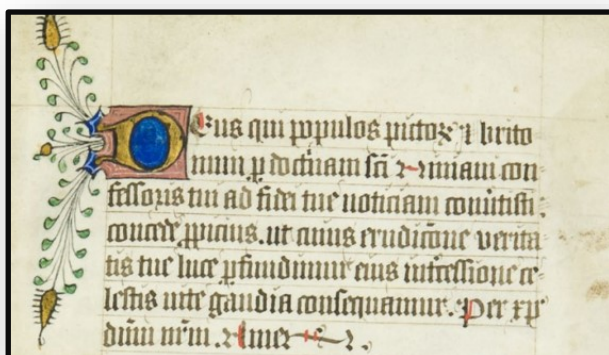 Deus qui populos pictoꝝ ⁊ brito
num ꝑ doctͥnam sc̄i Niniani con
fessoris tui ad fidei tue noticiam conũtisti.
concede ꝓpicius. ut cuius erudic̄one verita
tis tue luce ꝑfundimur eius int̾cessione ce
lestis vite gaudia consequamur. Per xp̄
dn̄m nr̄m. Amen.